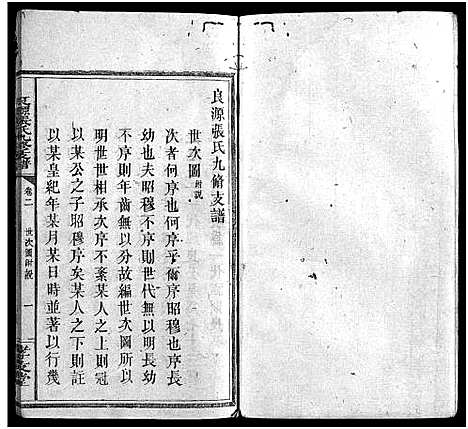 良源張氏九脩支譜
世次圖附説
次者何序也何序乎爾序昭穆也序長
幼也夫昭穆不序則世代無以明長幼
不序則年齒無以分故編世次圖所以
明世世相承次序不紊某人之上則冠
以某公之子昭穆序矣某人之下則註
以某皇紀年某月某日時並著以行幾
卷二
世次圖附説
一